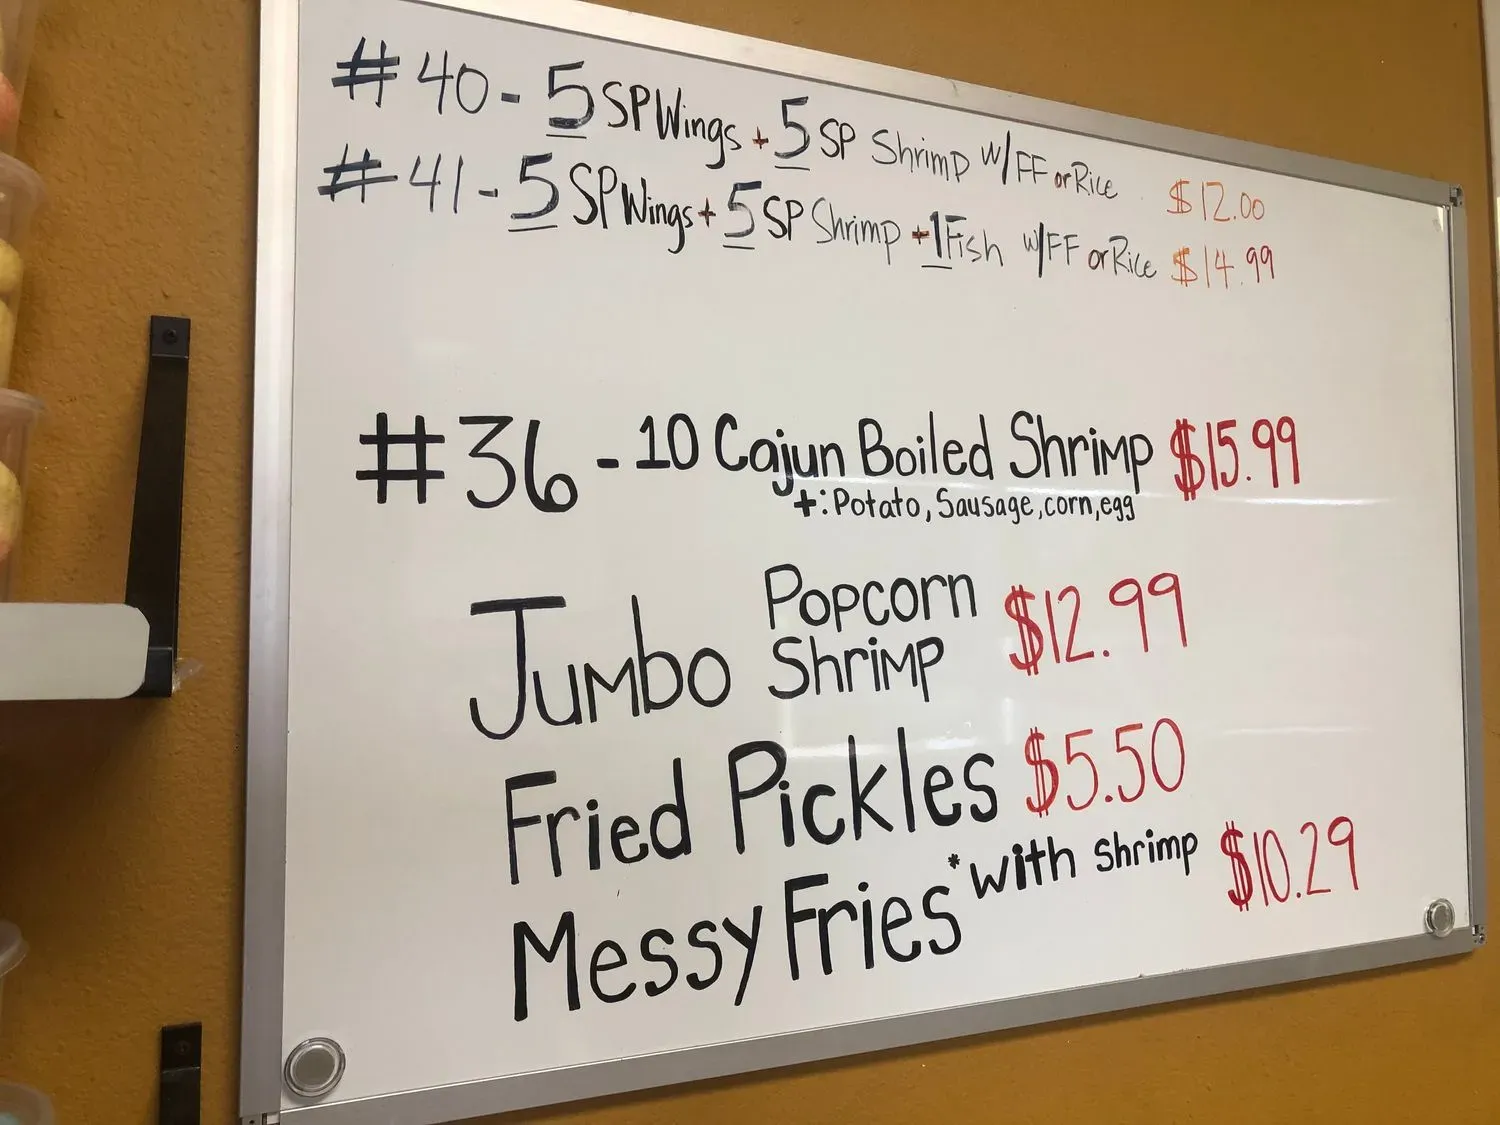 #40 - 5 SP Wings + 5 SP Shrimp w/FF or Rice $12.00
#41 - 5 SP Wings + 5 SP Shrimp + 1 Fish w/FF or Rice $14.99
#36 - 10 Cajun Boiled Shrimp $15.99
+: Potato, Sausage, corn, egg
Jumbo Popcorn Shrimp $12.99
Fried Pickles $5.50
Messy Fries *with shrimp $10.29